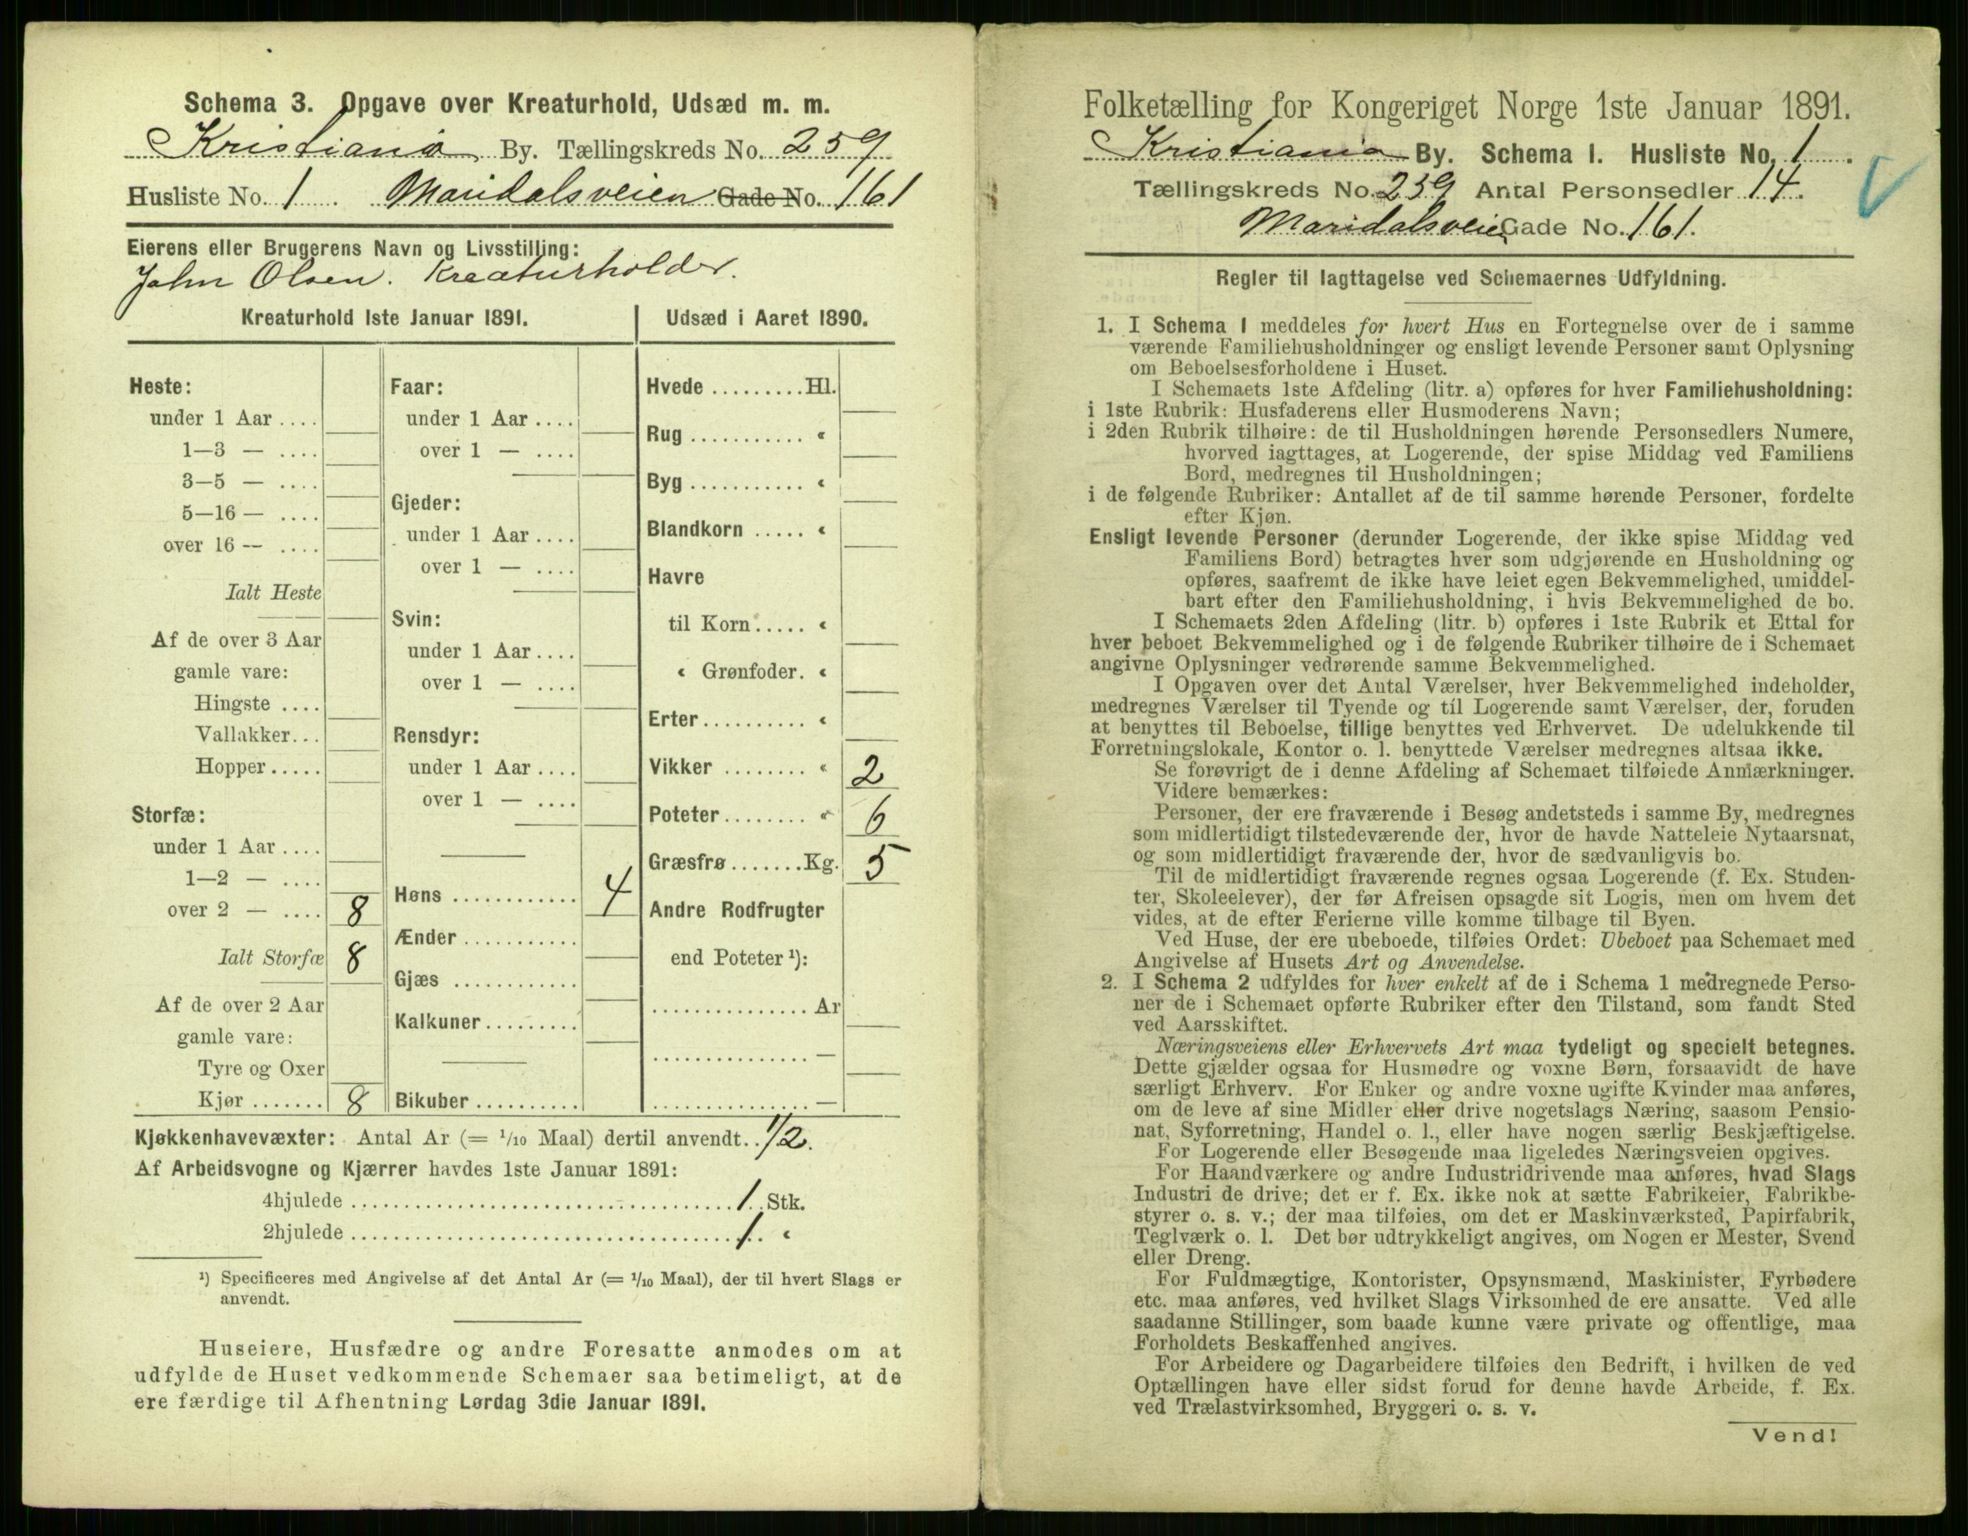 Schema 3. Opgave over Kreaturhold, Udsæd m. m.
Kristiania By. Tællingskreds No. 259
Husliste No. 1 Maridalsveien Gade No. 161
Eierens eller Brugerens Navn og Livsstilling:
John Olsen. Kreaturholder.
Kreaturhold 1ste Januar 1891.
Heste:
under 1 Aar....
1—3 — ....
3—5 — ....
5—16 — ....
over 16 — ....
Ialt Heste
Af de over 3 Aar
gamle vare:
Hingste....
Vallakker...
Hopper.....
Storfæ:
under 1 Aar....
1—2 — ....
over 2 — .... 8
Ialt Storfæ 8
Af de over 2 Aar
gamle vare:
Tyre og Oxer
Kjør....... 8
Faar:
under 1 Aar....
over 1 — ....
Gjeder:
under 1 Aar....
over 1 — ....
Svin:
under 1 Aar....
over 1 — ....
Rensdyr:
under 1 Aar....
over 1 — ....
Høns............ 4
Ænder...........
Gjæs............
Kalkuner.........
Bikuber..........
Udsæd i Aaret 1890.
Hvede.........Hl.
Rug........... "
Byg........... "
Blandkorn..... "
Havre
til Korn..... "
" Grønfoder. "
Erter.......... "
Vikker........ " 2
Poteter........ " 6
Græsfrø.......Kg. 5
Andre Rodfrugter
end Poteter ¹):
...............Ar
...............—
...............—
Kjøkkenhavevæxter: Antal Ar (= 1/10 Maal) dertil anvendt.. 1/2.
Af Arbeidsvogne og Kjærrer havdes 1ste Januar 1891:
4hjulede.................................... 1 Stk.
2hjulede.................................... 1 "
¹) Specificeres med Angivelse af det Antal Ar (= 1/10 Maal), der til hvert Slags er
anvendt.
Huseiere, Husfædre og andre Foresatte anmodes om at
udfylde de Huset vedkommende Schemaer saa betimeligt, at de
ere færdige til Afhentning Lørdag 3die Januar 1891.
Folketælling for Kongeriget Norge 1ste Januar 1891.
Kristiania By. Schema 1. Husliste No. 1.
Tællingskreds No. 259 Antal Personsedler 14.
Maridalsveien Gade No. 161.
Regler til Iagttagelse ved Schemaernes Udfyldning.
1. I Schema 1 meddeles for hvert Hus en Fortegnelse over de i samme
værende Familiehusholdninger og ensligt levende Personer samt Oplysning
om Beboelsesforholdene i Huset.
I Schemaets 1ste Afdeling (litr. a) opføres for hver Familiehusholdning:
i 1ste Rubrik: Husfaderens eller Husmoderens Navn;
i 2den Rubrik tilhøire: de til Husholdningen hørende Personsedlers Numere,
hvorved iagttages, at Logerende, der spise Middag ved Familiens
Bord, medregnes til Husholdningen;
i de følgende Rubriker: Antallet af de til samme hørende Personer, fordelte
efter Kjøn.
Ensligt levende Personer (derunder Logerende, der ikke spise Middag ved
Familiens Bord) betragtes hver som udgjørende en Husholdning og
opføres, saafremt de ikke have leiet egen Bekvemmelighed, umiddel-
bart efter den Familiehusholdning, i hvis Bekvemmelighed de bo.
I Schemaets 2den Afdeling (litr. b) opføres i 1ste Rubrik et Ettal for
hver beboet Bekvemmelighed og i de følgende Rubriker tilhøire de i Schemaet
angivne Oplysninger vedrørende samme Bekvemmelighed.
I Opgaven over det Antal Værelser, hver Bekvemmelighed indeholder,
medregnes Værelser til Tyende og til Logerende samt Værelser, der, foruden
at benyttes til Beboelse, tillige benyttes ved Erhvervet. De udelukkende til
Forretningslokale, Kontor o. l. benyttede Værelser medregnes altsaa ikke.
Se forøvrigt de i denne Afdeling af Schemaet tilføiede Anmærkninger.
Videre bemærkes:
Personer, der ere fraværende i Besøg andetsteds i samme By, medregnes
som midlertidigt tilstedeværende der, hvor de havde Natteleie Nytaarsnat,
og som midlertidigt fraværende der, hvor de sædvanligvis bo.
Til de midlertidigt fraværende regnes ogsaa Logerende (f. Ex. Studen-
ter, Skoleelever), der før Afreisen opsagde sit Logis, men om hvem det
vides, at de efter Ferierne ville komme tilbage til Byen.
Ved Huse, der ere ubeboede, tilføies Ordet: Ubeboet paa Schemaet med
Angivelse af Husets Art og Anvendelse.
2. I Schema 2 udfyldes for hver enkelt af de i Schema 1 medregnede Perso-
ner de i Schemaet opførte Rubriker efter den Tilstand, som fandt Sted
ved Aarsskiftet.
Næringsveiens eller Erhvervets Art maa tydeligt og specielt betegnes.
Dette gjælder ogsaa for Husmødre og voxne Børn, forsaavidt de have
særligt Erhverv. For Enker og andre voxne ugifte Kvinder maa anføres,
om de leve af sine Midler eller drive nogetslags Næring, saasom Pensio-
nat, Syforretning, Handel o. l., eller have nogen særlig Beskjæftigelse.
For Logerende eller Besøgende maa ligeledes Næringsveien opgives.
For Haandværkere og andre Industridrivende maa anføres, hvad Slags
Industri de drive; det er f. Ex. ikke nok at sætte Fabrikeier, Fabrikbe-
styrer o. s. v.; der maa tilføies, om det er Maskinværksted, Papirfabrik,
Teglværk o. l. Det bør udtrykkeligt angives, om Nogen er Mester, Svend
eller Dreng.
For Fuldmægtige, Kontorister, Opsynsmænd, Maskinister, Fyrbødere
etc. maa anføres, ved hvilket Slags Virksomhed de ere ansatte. Ved alle
saadanne Stillinger, som baade kunne være private og offentlige, maa
Forholdets Beskaffenhed angives.
For Arbeidere og Dagarbeidere tilføies den Bedrift, i hvilken de ved
Optællingen have eller sidst forud for denne havde Arbeide, f. Ex.
ved Trælastvirksomhed, Bryggeri o. s. v.
Vend!